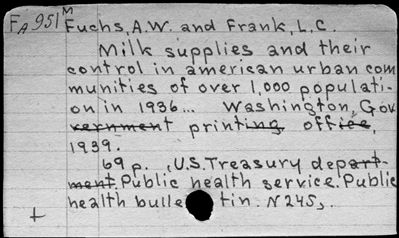 FA951M Fuchs, A.W. and Frank, L.C.
Milk supplies and their
control in american urban com
munities of over 1,000 populati-
on in 1936... Washington, Gov
vernment printing office,
1939.
69 p. (U.S. Treasury depart-
ment. Public health service. Public
health bulletin. N245,